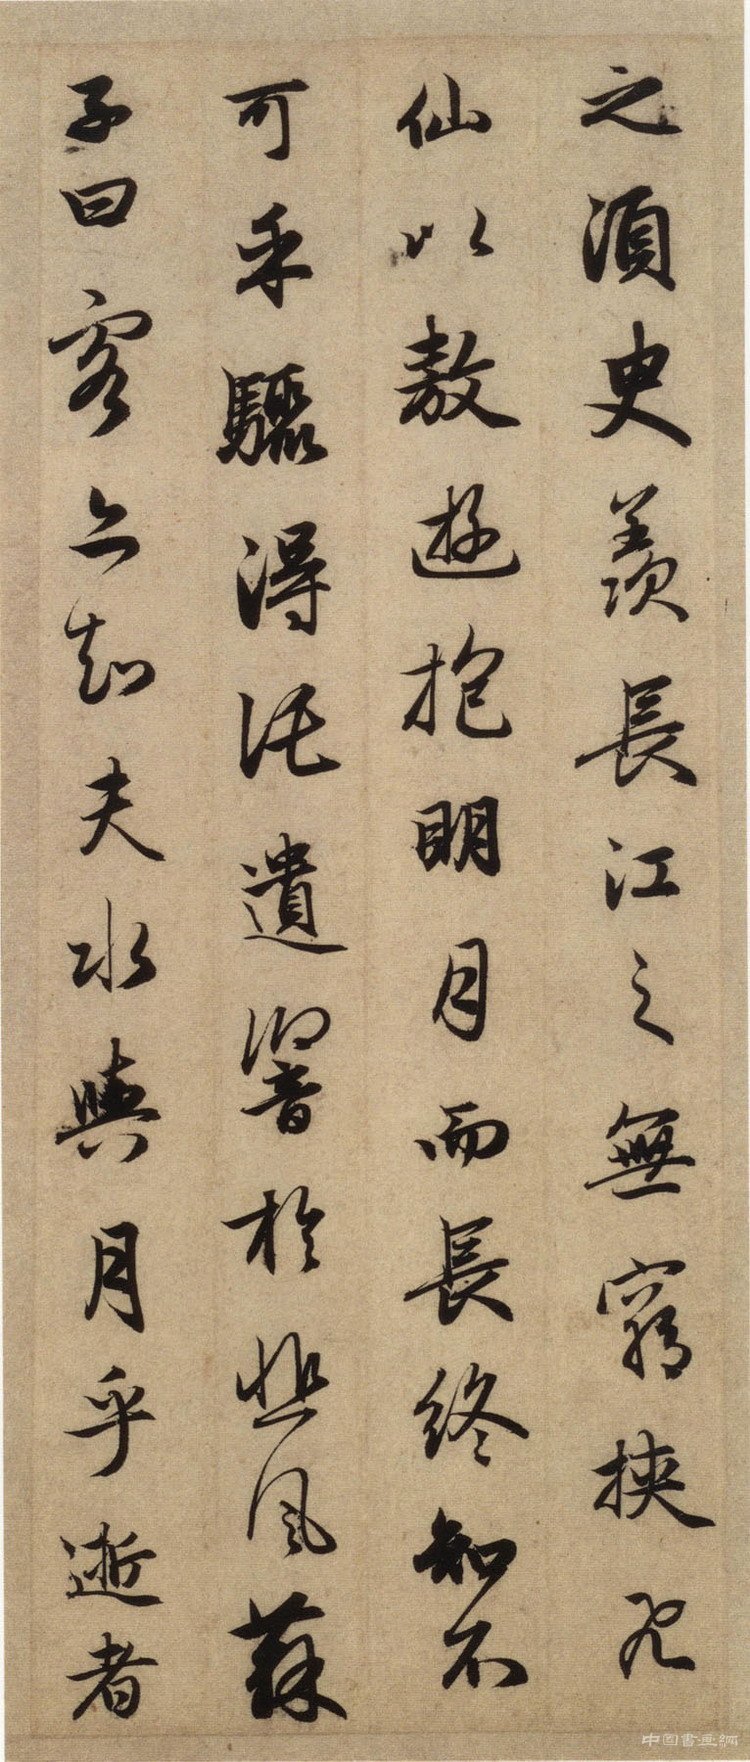 之須臾羨長江之無窮挾飛
仙以敖遊抱明月而長終知不
可乎驟得託遺響於悲風蘇
子曰客亦知夫水與月乎逝者
中国書画網